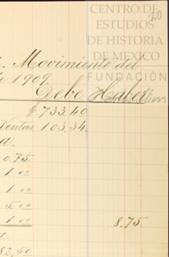 CENTRO DE
ESTUDIOS
DE HISTORIA
DE MEXICO
FUNDACIÓN
Movimiento del
1909.
Debe Haber
$ 733.40
Ventas 103.34
0.75
1.00
1.00
5.00
1.00 8.75
82,50